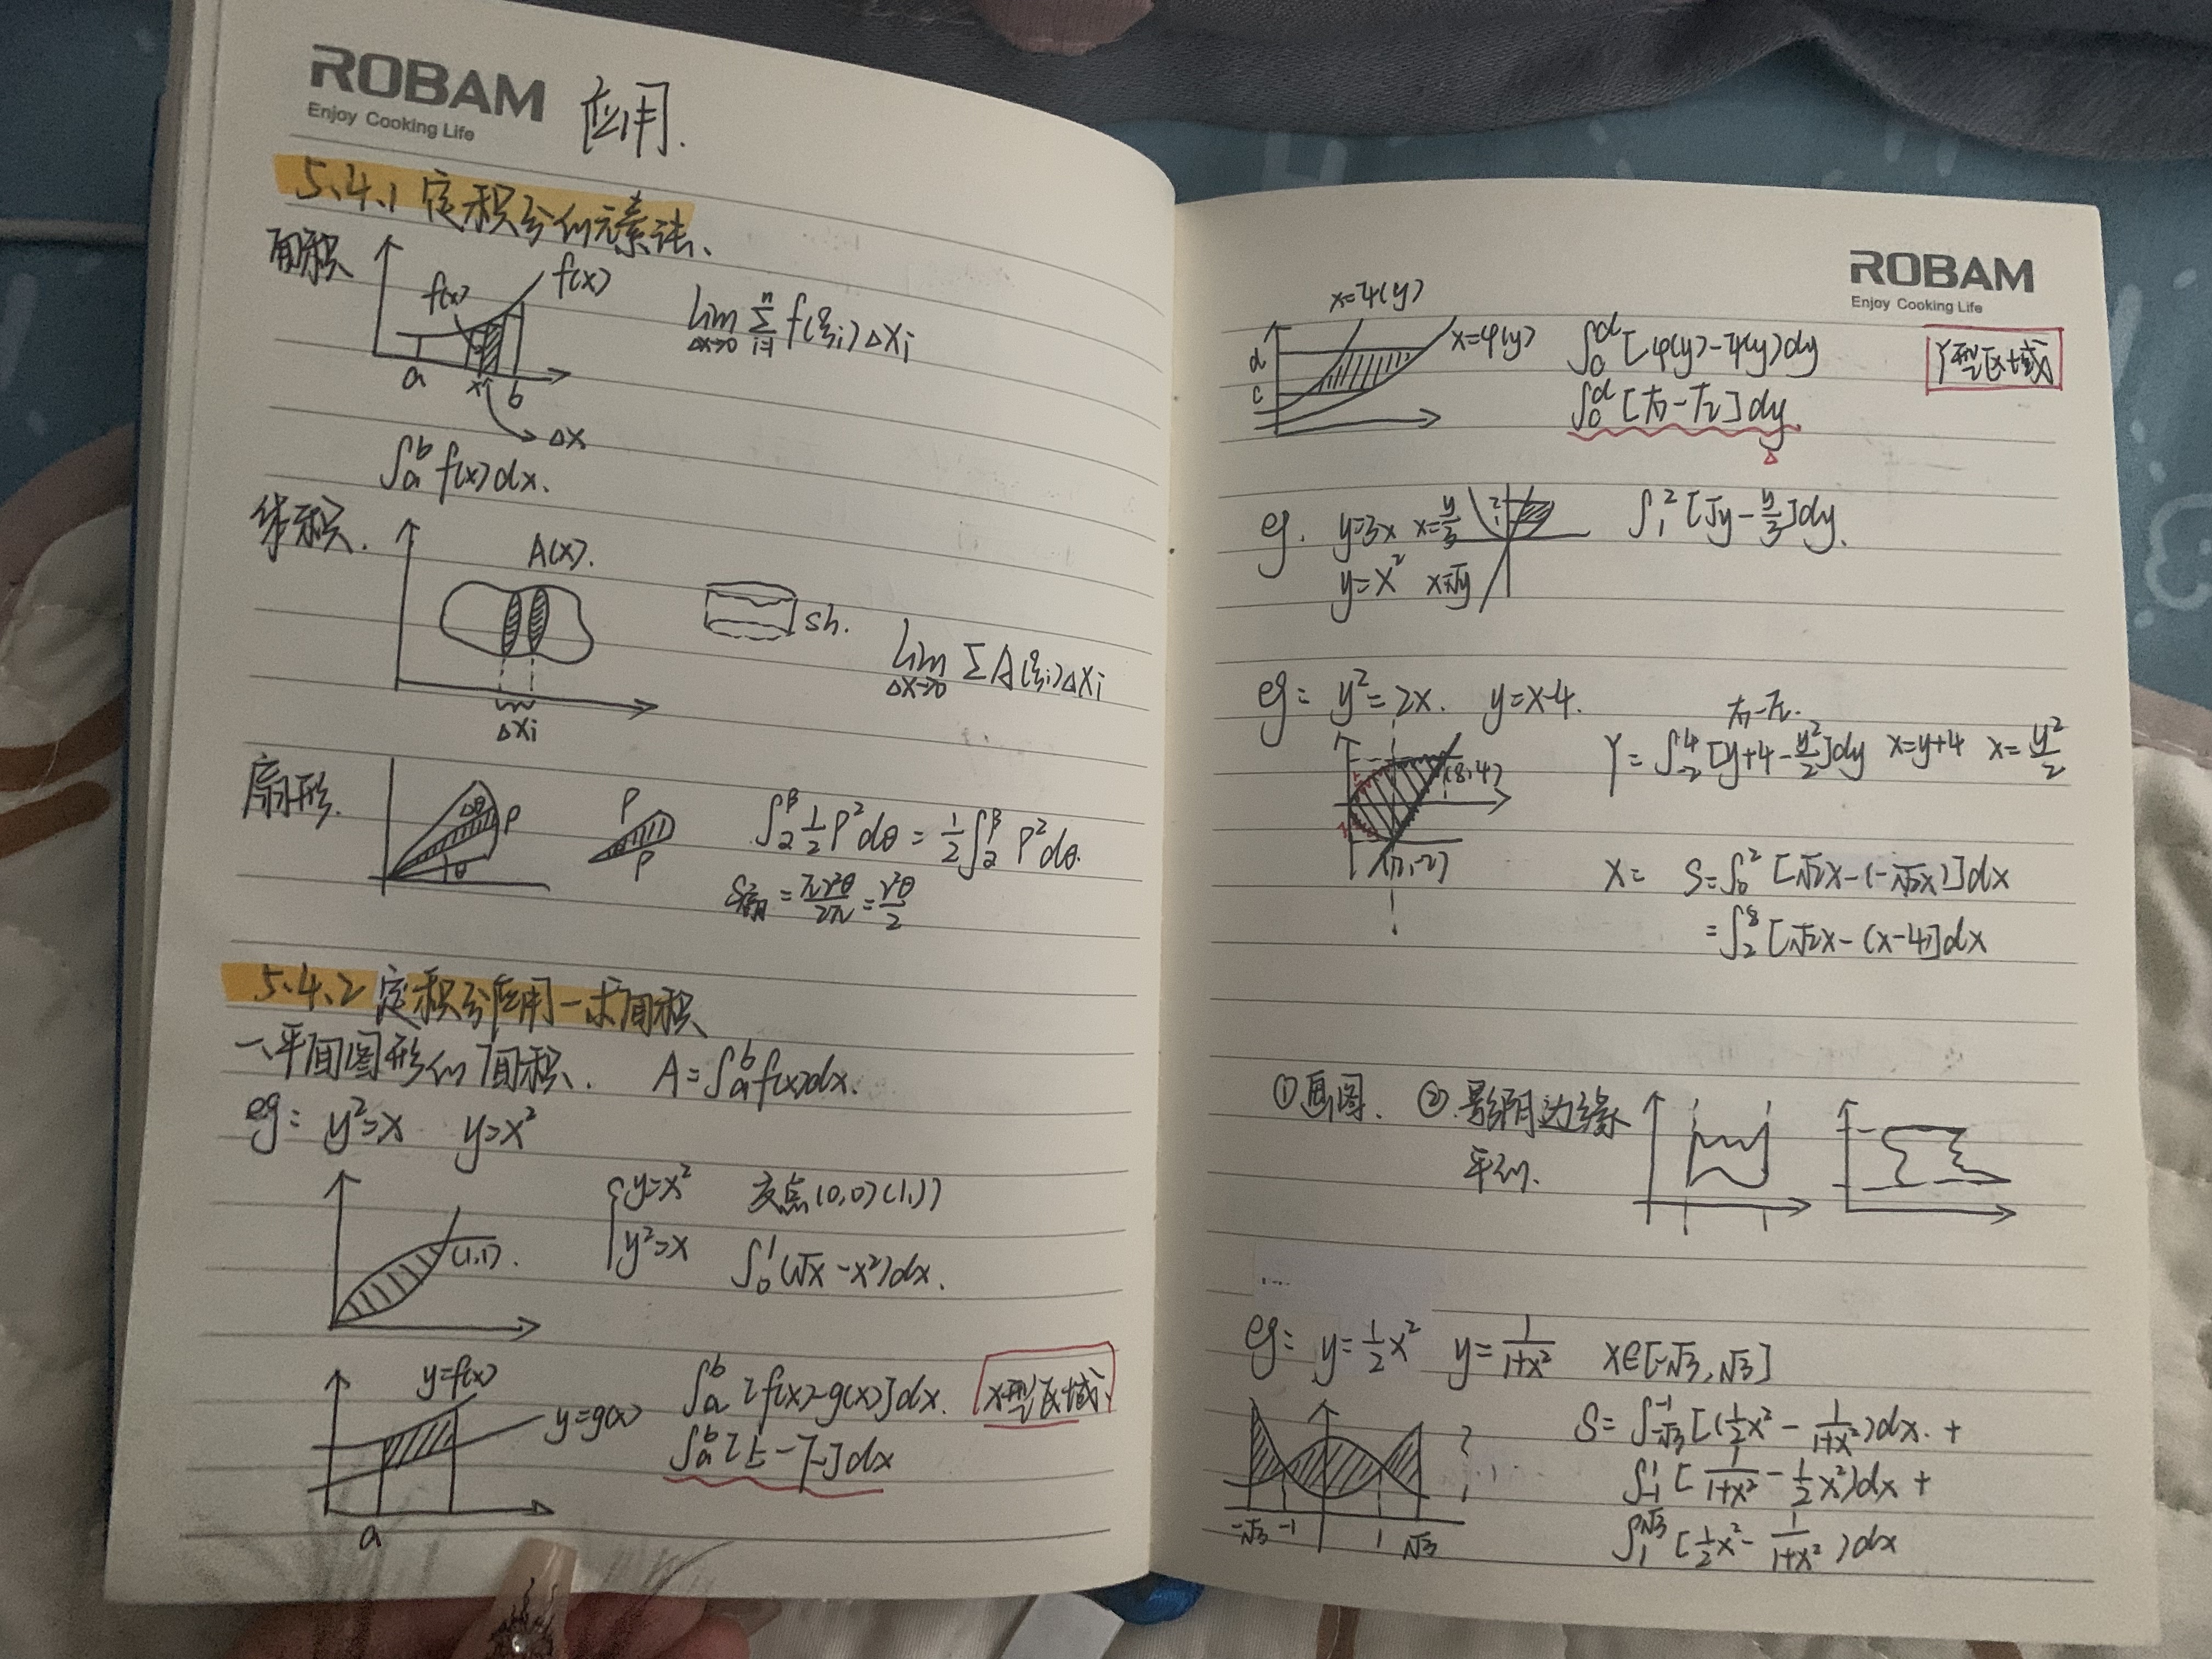 ROBAM
Enjoy Cooking Life
应用.
5.4.1 定积分的元素法、
面积
f(x)
f(x)
a x b
Δx
lim Δx→0 Σ i=1 n f(ξi)Δxi
∫a^b f(x)dx.
体积.
A(x).
Δxi
sh.
lim Δx→0 Σ A(ξi)Δxi
扇形.
Δθ ρ
θ
ρ
ρ
∫α^β 1/2 ρ²dθ = 1/2 ∫α^β ρ²dθ.
S扇 = πr²θ/2π = r²θ/2
5.4.2 定积分应用一求面积
一、平面图形的面积. A=∫a^b f(x)dx.
eg: y²=x y=x²
(1,1).
{y=x² 交点(0,0)(1,1)
y²=x ∫0^1 (√x -x²)dx.
y=f(x)
y=g(x)
a
∫a^b [f(x)-g(x)]dx. X型区域
∫a^b [上-下]dx
ROBAM
Enjoy Cooking Life
x=ψ(y)
x=φ(y)
d
c
∫c^d [φ(y)-ψ(y)]dy
Y型区域
∫c^d [右-左]dy
eg. y=3x x=y/3
2
1
∫1^2 [√y - y/3]dy.
y=x² x=√y
eg: y²=2x. y=x-4.
右-左.
(8,4)
(2,-2)
Y= ∫-2^4 [y+4 - y²/2]dy x=y+4 x= y²/2
X= S=∫0^2 [√2x-(-√2x)]dx
=∫2^8 [√2x-(x-4)]dx
①画图. ②.影阴边缘
平的.
eg: y=1/2 x² y=1/(1+x²) x∈[-√3,√3]
-√3 -1 1 √3
S= ∫-√3^-1 [(1/2 x² - 1/(1+x²))dx. +
∫-1^1 [1/(1+x²) - 1/2 x²)dx +
∫1^√3 [1/2 x² - 1/(1+x²))dx